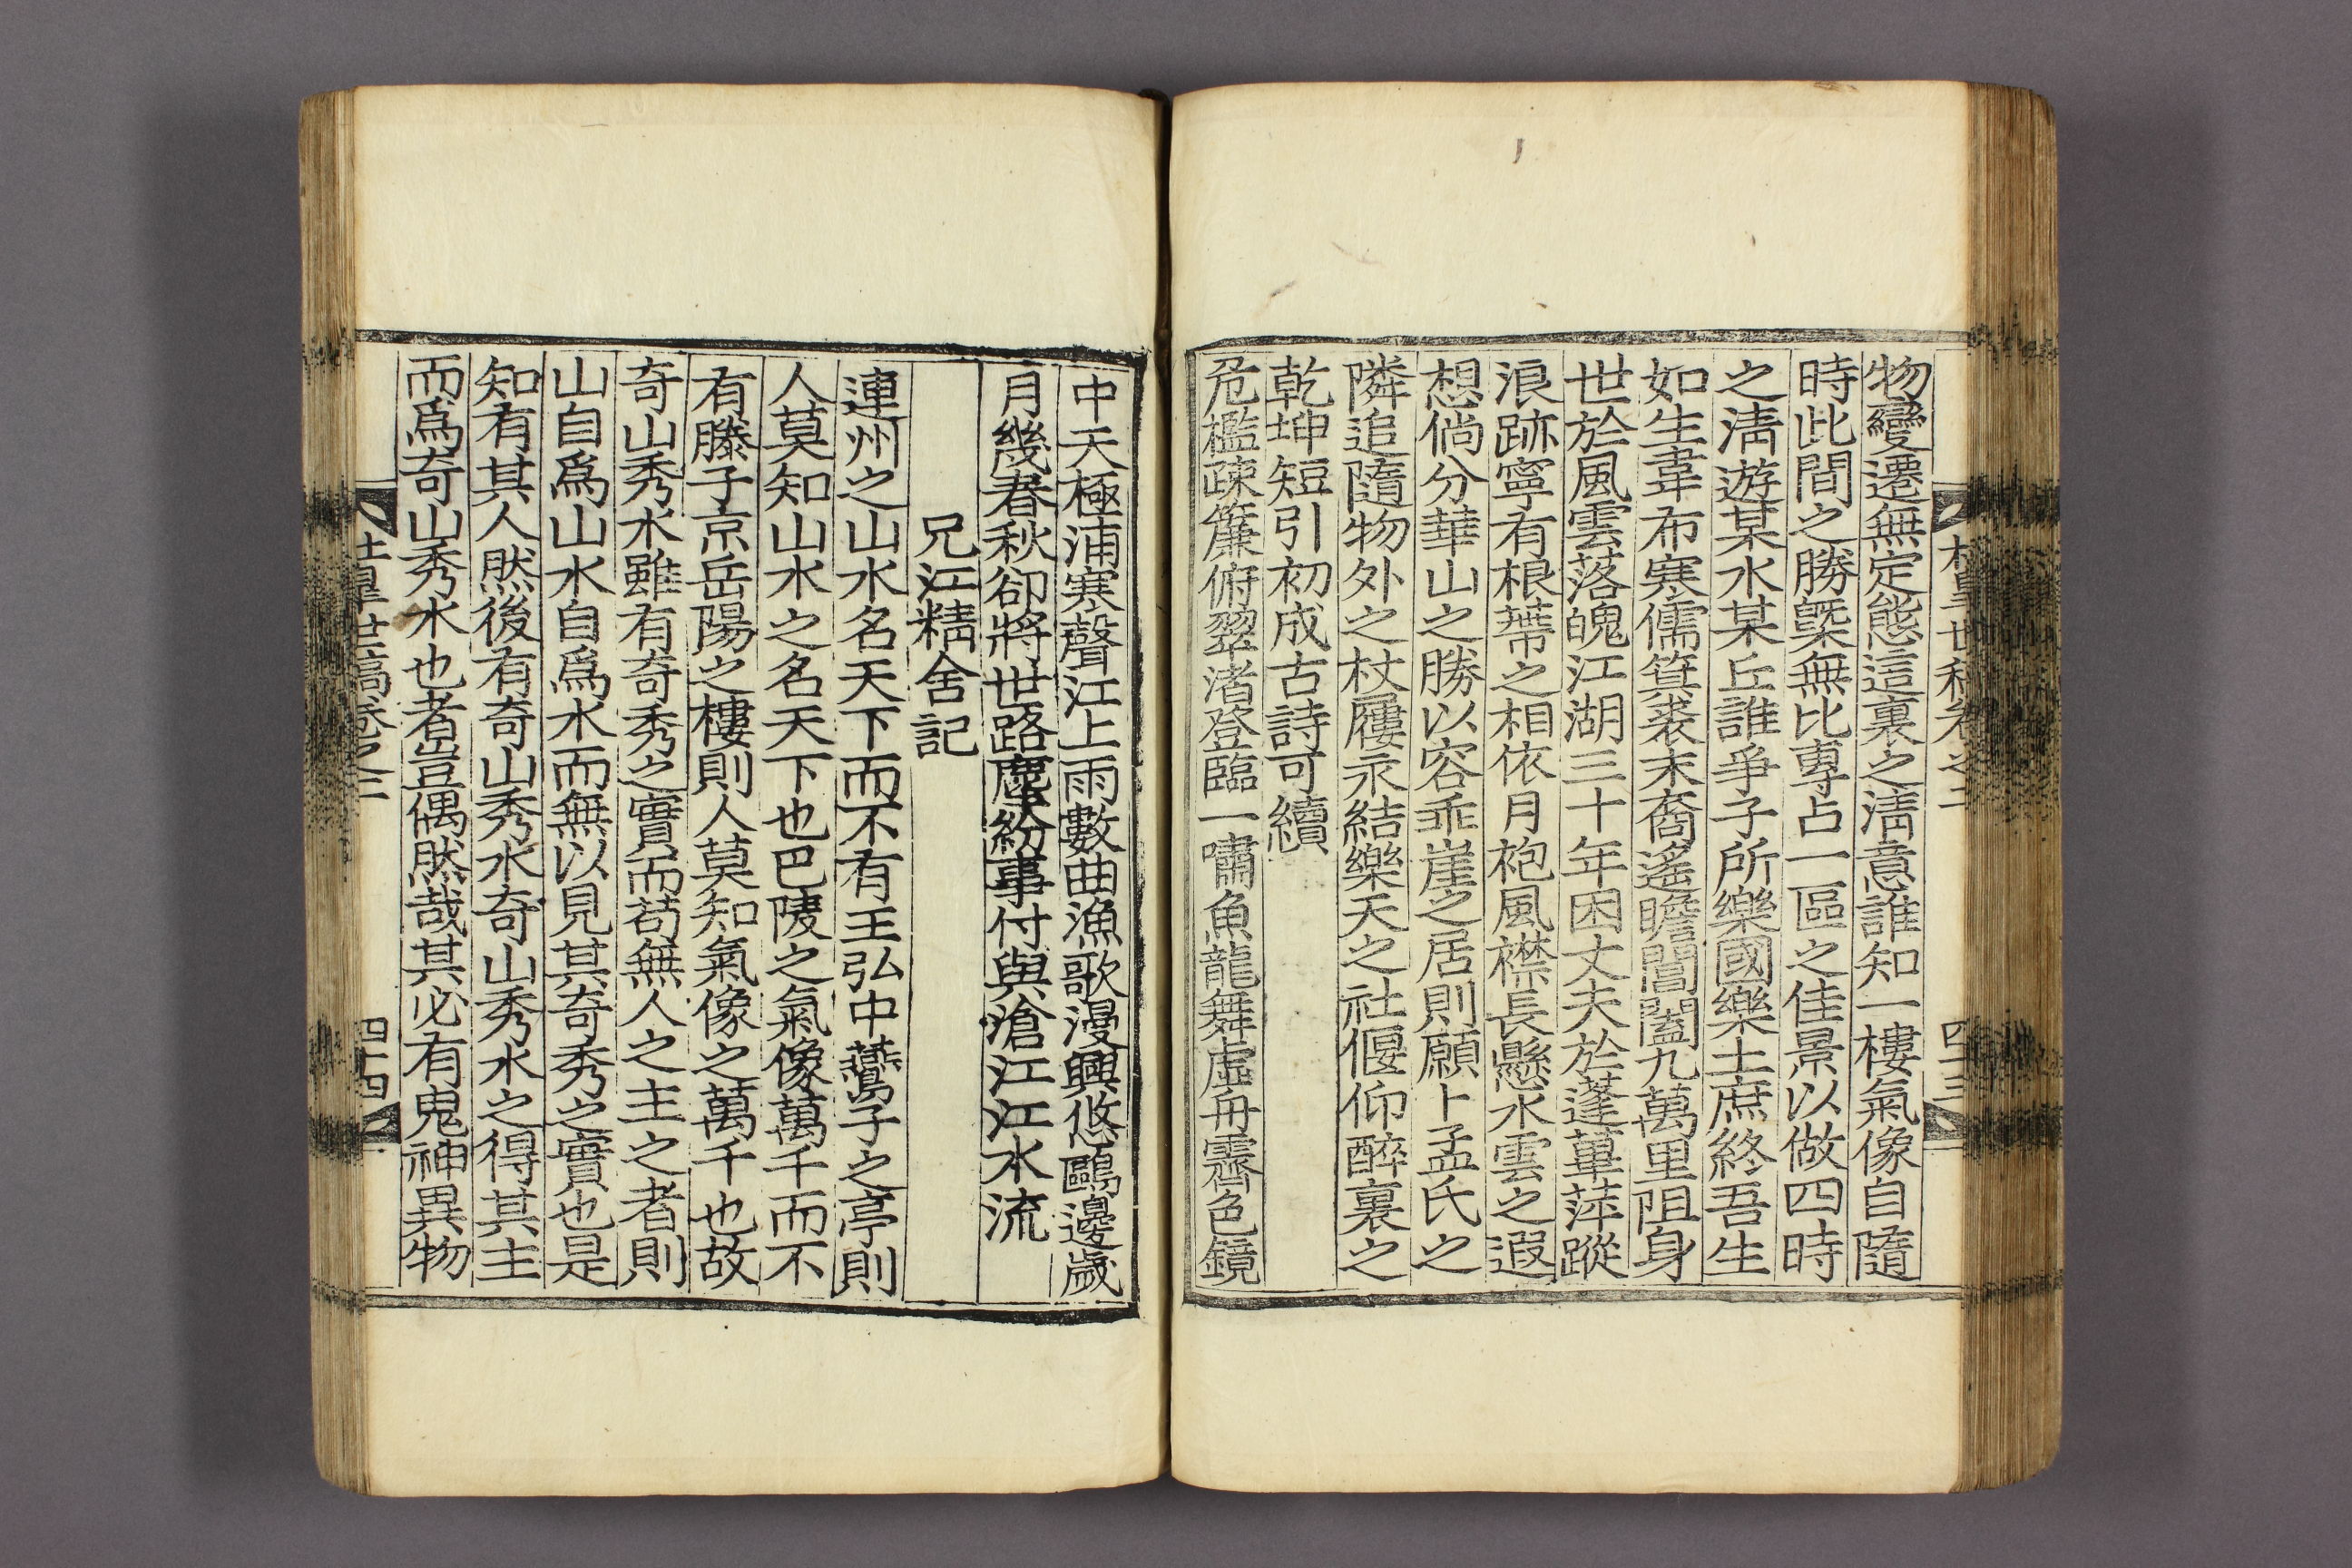 物變遷無定態這裏之淸意誰知一樓氣像自隨
時此間之勝槩無比專占一區之佳景以做四時
之淸遊某水某丘誰爭子所樂國樂土庶終吾生
如生韋布寒儒箕裘末裔遙瞻閶闔九萬里阻身
世於風雲落魄江湖三十年困丈夫於蓬蓽萍蹤
浪跡寧有根蔕之相依月袍風襟長懸水雲之遐
想倘分華山之勝以容乖崖之居則願卜孟氏之
隣追隨物外之杖屨永結樂天之社偃仰醉裏之
乾坤短引初成古詩可續
危檻疎簾俯翠渚登臨一嘯魚龍舞虛舟霽色鏡
世稿卷之二
四十三
中天極浦寒聲江上雨數曲漁歌漫興悠鷗邊歲
月幾春秋卻將世路塵紛事付與滄江江水流
兄江精舍記
連州之山水名天下而不有王弘中鷰子之亭則
人莫知山水之名天下也巴陵之氣像萬千而不
有滕子京岳陽之樓則人莫知氣像之萬千也故
奇山秀水雖有奇秀之實而苟無人之主之者則
山自爲山水自爲水而無以見其奇秀之實也是
知有其人然後有奇山秀水奇山秀水之得其主
而爲奇山秀水也者豈偶然哉其必有鬼神異物
世稿卷之二
四十四